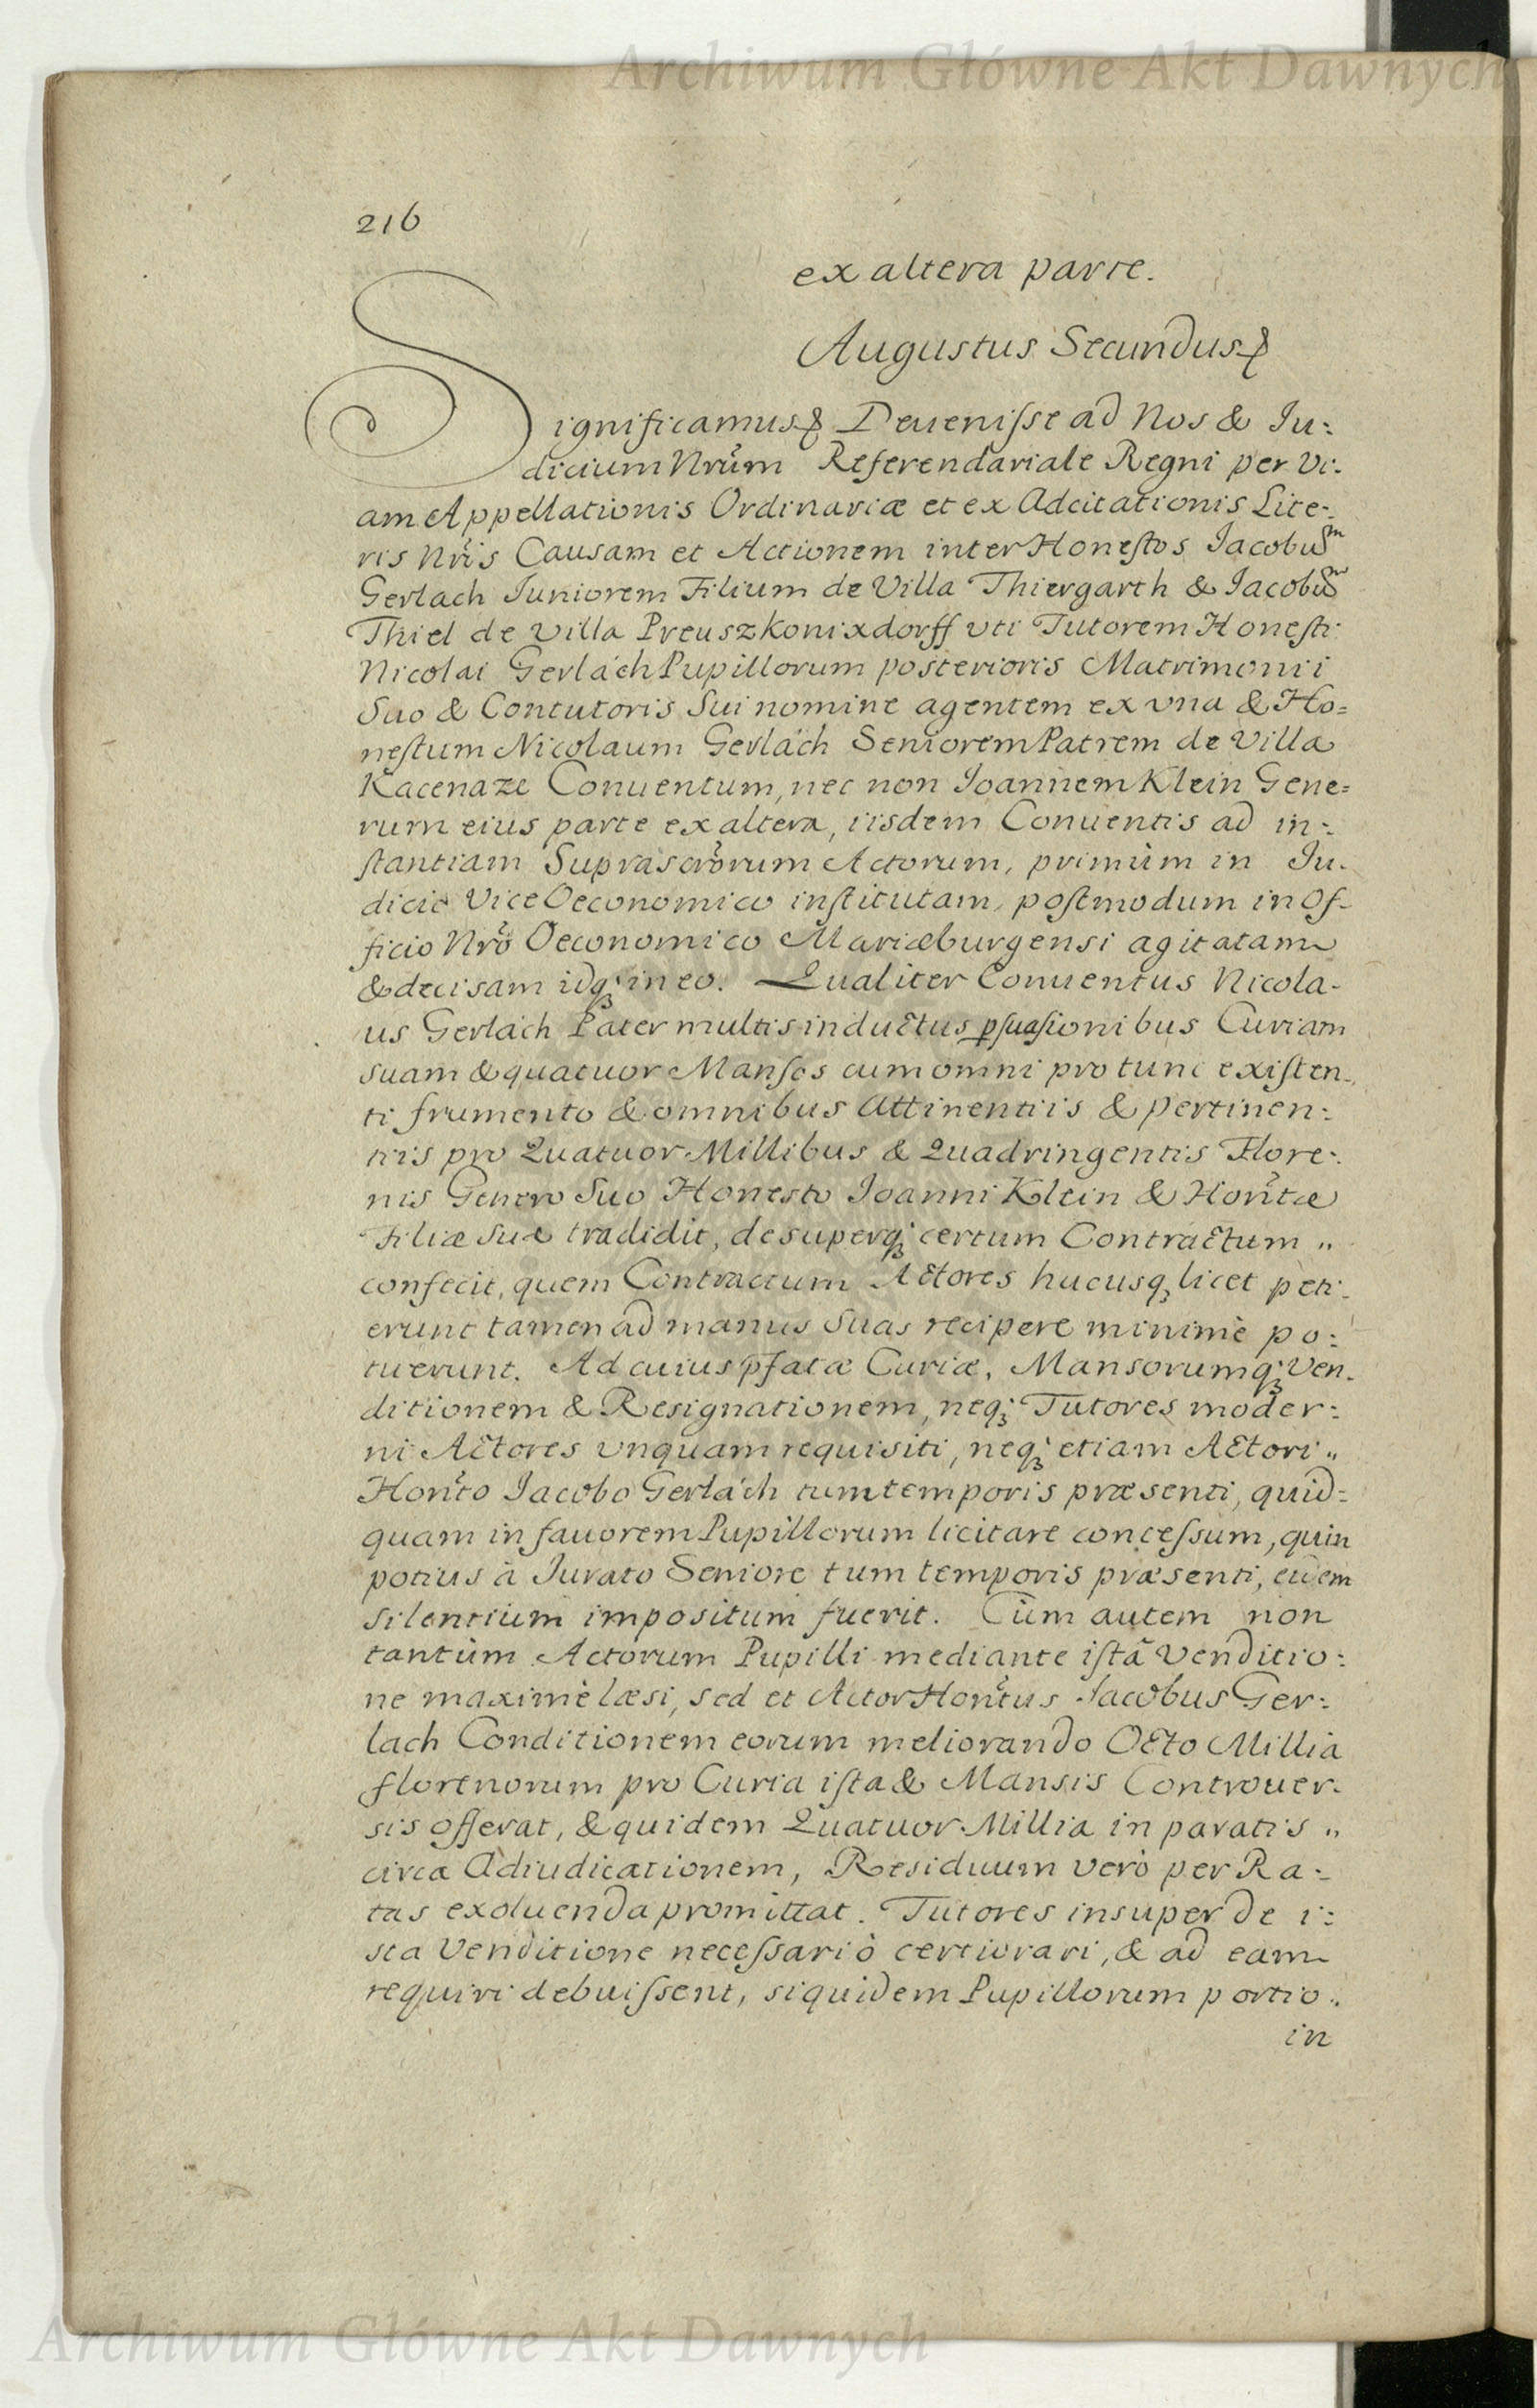 Archiwum Główne Akt Dawnych
216
ex altera parte.
Augustus Secundus &
Significamus & Deueniſse ad Nos & Iu:
dicium Nrũm Referendariale Regni per Vi:
am Appellationis Ordinariæ et ex Adcitationis Lite:
ris Nřis Causam et Actionem inter Honeſtos Iacobuͫ
Gerlach Iuniorem Filium de Villa Thiergarth & Iacobuͫ
Thiel de Villa Preuszkonixdorff vti Tutorem Honeſti
Nicolai Gerlach Pupillorum posterioris Matrimonii
Suo & Contutoris Sui nomine agentem ex vna & Ho=
neſtum Nicolaum Gerlach Seniorem Patrem de Villa
Kacenaze Conuentum, nec non Ioannem Klein Gene=
rum eius parte ex altera, iisdem Conuentis ad in:
ſtantiam Suprascrõrum Actorum, primùm in Iu.
dicio Vice Oeconomico inſtitutam, poſtmodum in Of-
ficio Nrõ Oeconomico Mariæburgensi agitatam
& decisam idq; in eo. Qualiter Conuentus Nicola-
us Gerlach Pater multis inductus pſuaſionibus Curiam
suam & quatuor Manſos cum omni pro tunc exiſten-
ti frumento & omnibus Attinentiis & pertinen:
tiis pro Quatuor Millibus & Quadringentis Flore:
nis Genero Suo Honesto Ioanni Klein & Honťæ
Filiæ Suæ tradidit, desuperq; certum Contractum „
confecit, quem Contractum Actores hucusq; licet peti-
erunt tamen ad manus Suas recipere minimè po:
tuerunt. Ad cuius p̄fatæ Curiæ, Mansorumq; Ven-
ditionem & Resignationem, neq; Tutores moder:
ni Actores vnquam requisiti, neq; etiam Actori „
Honťo Iacobo Gerlach tum temporis præsenti, quid=
quam in fauorem Pupillorum licitare conceſsum, quin
potius à Iurato Seniore tum temporis præsenti, eidem
silentium impositum fuerit. Cùm autem non
tantùm Actorum Pupilli mediante iſtâ Venditio:
ne maximè læsi, sed et Actor Honťus Iacobus Ger:
lach Conditionem eorum meliorando Octo Millia
florenorum pro Curia iſta & Mansis Controuer-
sis offerat, & quidem Quatuor Millia in paratis „
circa Adiudicationem, Residuum verò per Ra:
tas exoluenda promittat. Tutores insuper de i:
sta Venditione neceſsariò certiorari, & ad eam
requiri debuiſsent, siquidem Pupillorum portio.
in
Archiwum Główne Akt Dawnych